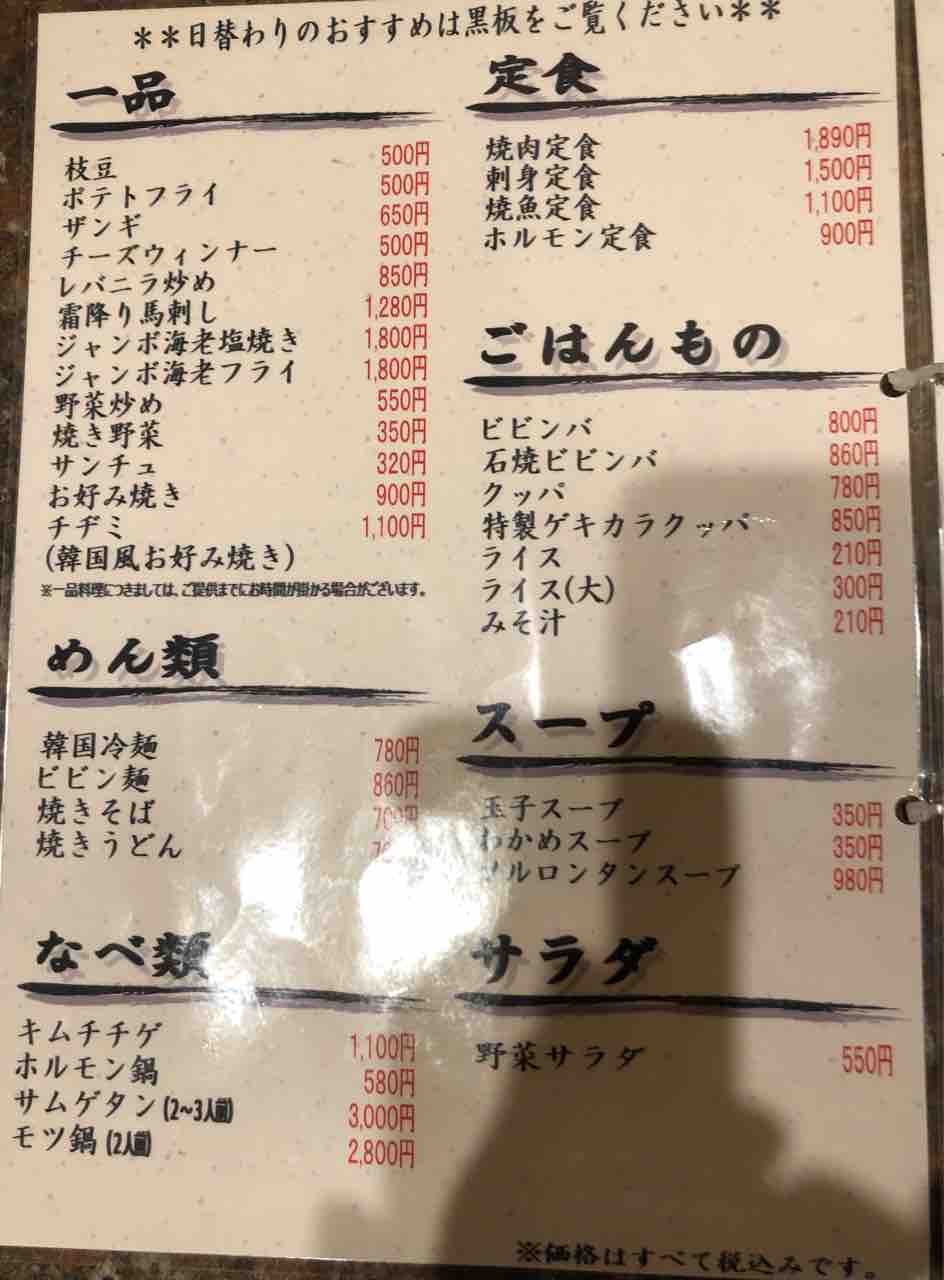 ＊＊日替わりのおすすめは黒板をご覧ください＊＊
一品
枝豆 500円
ポテトフライ 500円
ザンギ 650円
チーズウィンナー 500円
レバニラ炒め 850円
霜降り馬刺し 1,280円
ジャンボ海老塩焼き 1,800円
ジャンボ海老フライ 1,800円
野菜炒め 550円
焼き野菜 350円
サンチュ 320円
お好み焼き 900円
チヂミ 1,100円
(韓国風お好み焼き)
※一品料理につきましては、ご提供までにお時間が掛かる場合がございます。
めん類
韓国冷麺 780円
ビビン麺 860円
焼きそば
焼きうどん
なべ類
キムチチゲ 1,100円
ホルモン鍋 580円
サムゲタン(2〜3人前) 3,000円
モツ鍋(2人前) 2,800円
定食
焼肉定食 1,890円
刺身定食 1,500円
焼魚定食 1,100円
ホルモン定食 900円
ごはんもの
ビビンバ 800円
石焼ビビンバ 860円
クッパ 780円
特製ゲキカラクッパ 850円
ライス 210円
ライス(大) 300円
みそ汁 210円
スープ
玉子スープ 350円
わかめスープ 350円
ソルロンタンスープ 980円
サラダ
野菜サラダ 550円
※価格はすべて税込みです。